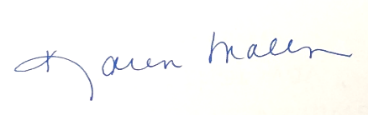 Karen Mallen